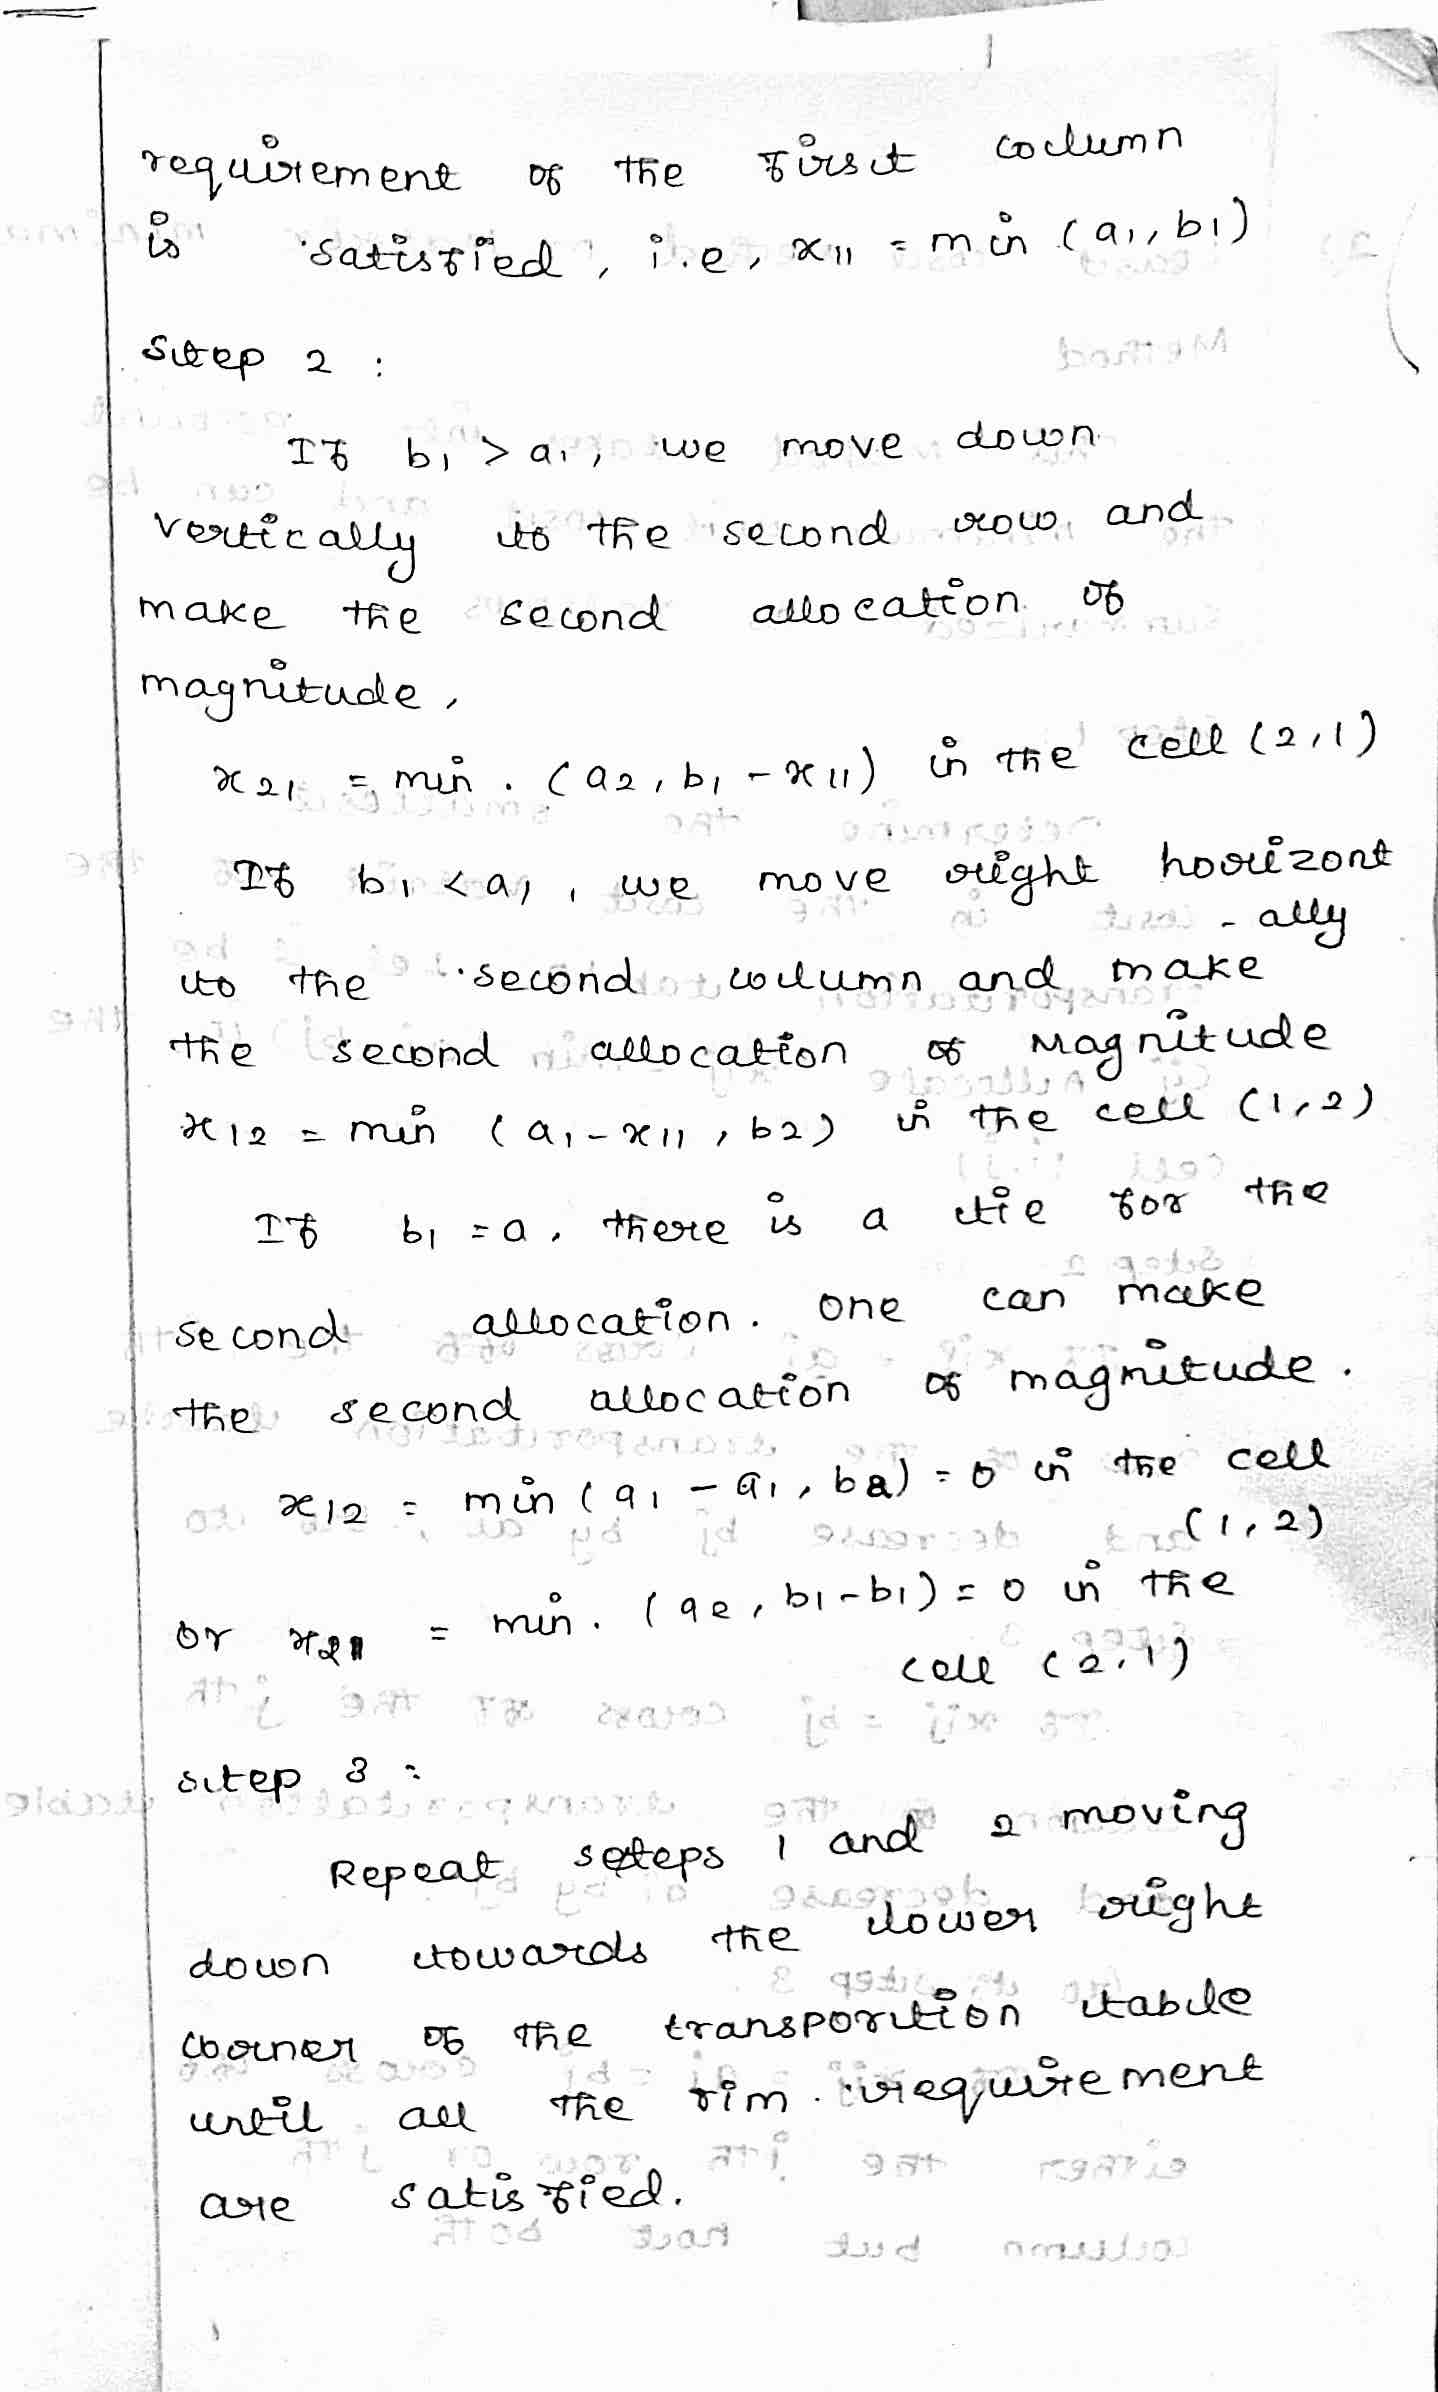 requirement of the first column
is satisfied, i.e, x11 = min (a1, b1)
Step 2 :
If b1 > a1, we move down
vertically to the second row and
make the second allocation of
magnitude,
x21 = min. (a2, b1 - x11) in the cell (2,1)
If b1 < a1, we move right horizont
- ally
to the second column and make
the second allocation of Magnitude
x12 = min (a1 - x11, b2) in the cell (1,2)
If b1 = a, there is a tie for the
second allocation. One can make
the second allocation of magnitude.
x12 = min (a1 - a1, b2) = 0 in the cell
(1,2)
or x21 = min. (a2, b1 - b1) = 0 in the
cell (2,1)
Step 3 :
Repeat steps 1 and 2 moving
down towards the lower right
corner of the transportion table
until all the rim requirement
are satisfied.